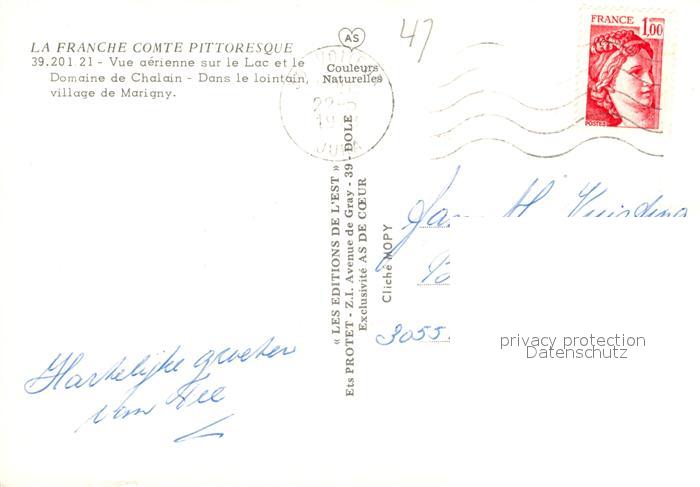 LA FRANCHE COMTE PITTORESQUE
39.201 21 - Vue aérienne sur le Lac et le
Domaine de Chalain - Dans le lointain,
village de Marigny.
AS
Couleurs
Naturelles
47
FRANCE
1,00
POSTES
JURA
« LES EDITIONS DE L'EST »
Ets PROTET - Z.I. Avenue de Gray - 39 - DOLE
Exclusivité AS DE CŒUR
Cliché MOPY
3055
privacy protection
Datenschutz
Hartelijke groeten
van Fee